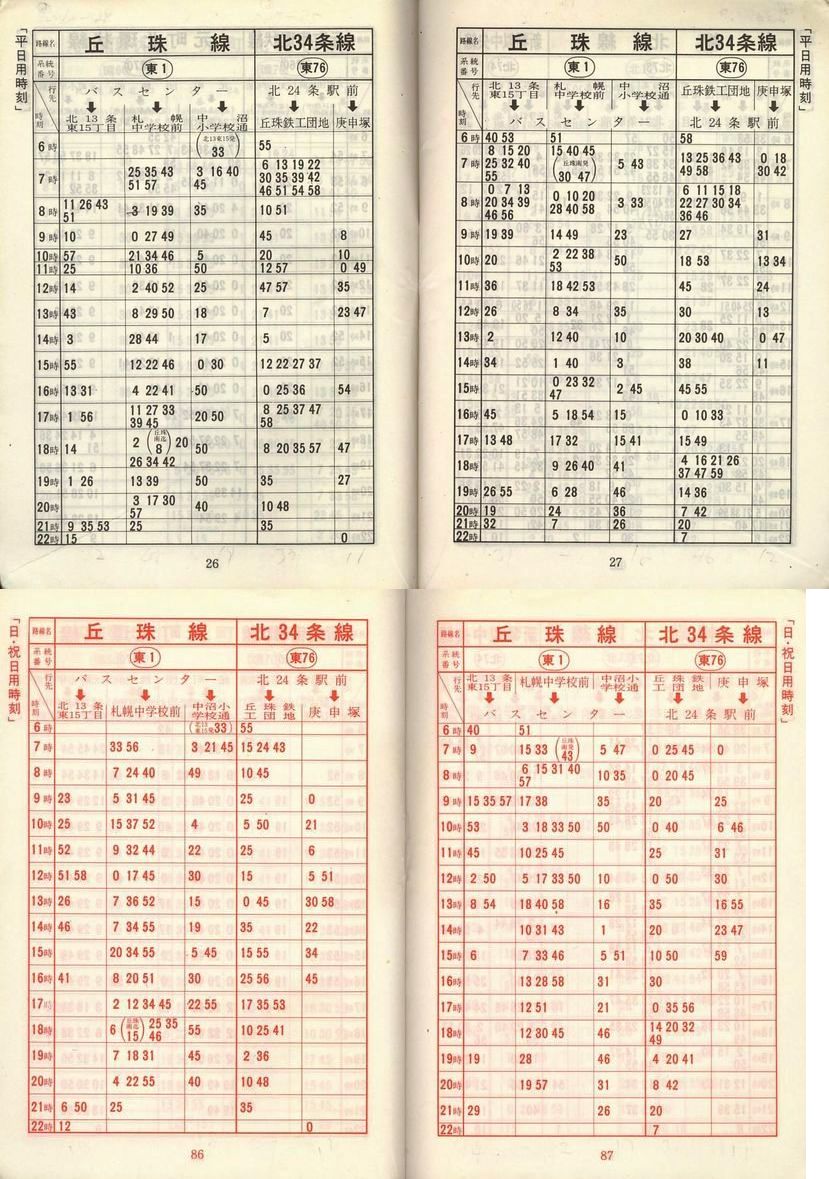 「平日用時刻」
路線名 丘珠線 北34条線
系統番号 東1 東76
行先 時刻 バスセンター 北24条駅前
北13条東15丁目 札幌中学校前 中沼小学校通 丘珠鉄工団地 庚申塚
6時 (北13東15発 33) 55
7時 25 35 43 51 57 3 16 40 45 6 13 19 22 30 35 39 42 46 51 54 58
8時 11 26 43 51 3 19 39 35 10 51
9時 10 0 27 49 45 8
10時 57 21 34 46 5 20 10
11時 25 10 36 50 12 57 0 49
12時 14 2 40 52 25 47 57 35
13時 43 8 29 50 18 7 23 47
14時 3 28 44 17 5
15時 55 12 22 46 0 30 12 22 27 37
16時 13 31 4 22 41 50 0 25 36 54
17時 1 56 11 27 33 39 45 20 50 8 25 37 47 58
18時 14 2 (丘珠南迄 8) 20 26 34 42 50 8 20 35 57 47
19時 1 26 13 39 50 35 27
20時 3 17 30 57 40 10 48
21時 9 35 53 25 35
22時 15 0
26
「平日用時刻」
路線名 丘珠線 北34条線
系統番号 東1 東76
行先 時刻 北13条東15丁目 札幌中学校前 中沼小学校通 丘珠鉄工団地 庚申塚
バスセンター 北24条駅前
6時 40 53 51 58
7時 8 15 20 25 32 40 55 15 40 45 (丘珠南発 30 47) 5 43 13 25 36 43 49 58 0 18 30 42
8時 0 7 13 20 34 39 46 56 0 10 20 28 40 58 3 33 6 11 15 18 22 27 30 34 36 46
9時 19 39 14 49 23 27 31
10時 20 2 22 38 53 50 18 53 13 34
11時 36 18 42 53 45 24
12時 26 8 34 35 30 13
13時 2 12 40 10 20 30 40 0 47
14時 34 1 40 3 38 11
15時 0 23 32 47 2 45 45 55
16時 45 5 18 54 15 0 10 33
17時 13 48 17 32 15 41 15 49
18時 9 26 40 41 4 16 21 26 37 47 59
19時 26 55 6 28 46 14 36
20時 19 24 36 7 42
21時 32 7 26 20
22時 7
27
「日・祝日用時刻」
路線名 丘珠線 北34条線
系統番号 東1 東76
行先 時刻 バスセンター 北24条駅前
北13条東15丁目 札幌中学校前 中沼小学校通 丘珠鉄工団地 庚申塚
6時 (北13東15発 33) 55
7時 33 56 3 21 45 15 24 43
8時 7 24 40 49 10 45
9時 23 5 31 45 25 0
10時 25 15 37 52 4 5 50 21
11時 52 9 32 44 22 25 6
12時 51 58 0 17 45 30 15 5 51
13時 26 7 36 52 15 0 45 30 58
14時 46 7 34 55 19 35 22
15時 20 34 55 5 45 15 55 34
16時 41 8 20 51 30 25 56 45
17時 2 12 34 45 22 55 17 35 53
18時 6 (丘珠南迄 15) 25 35 46 55 10 25 41
19時 7 18 31 45 2 36
20時 4 22 55 40 10 48
21時 6 50 25 35
22時 12 0
86
「日・祝日用時刻」
路線名 丘珠線 北34条線
系統番号 東1 東76
行先 時刻 北13条東15丁目 札幌中学校前 中沼小学校通 丘珠鉄工団地 庚申塚
バスセンター 北24条駅前
6時 40 51
7時 9 15 33 (丘珠南発 43) 5 47 0 25 45 0
8時 6 15 31 40 57 10 35 0 20 45
9時 15 35 57 17 38 35 20 25
10時 53 3 18 33 50 50 0 40 6 46
11時 45 10 25 45 25 31
12時 2 50 5 17 33 50 10 0 50 30
13時 8 54 18 40 58 16 35 16 55
14時 10 31 43 1 20 23 47
15時 6 7 33 46 5 51 10 50 59
16時 13 28 58 31 30
17時 12 51 21 0 35 56
18時 12 30 45 46 14 20 32 49
19時 19 28 46 4 20 41
20時 19 57 31 8 42
21時 29 26 20
22時 7
87